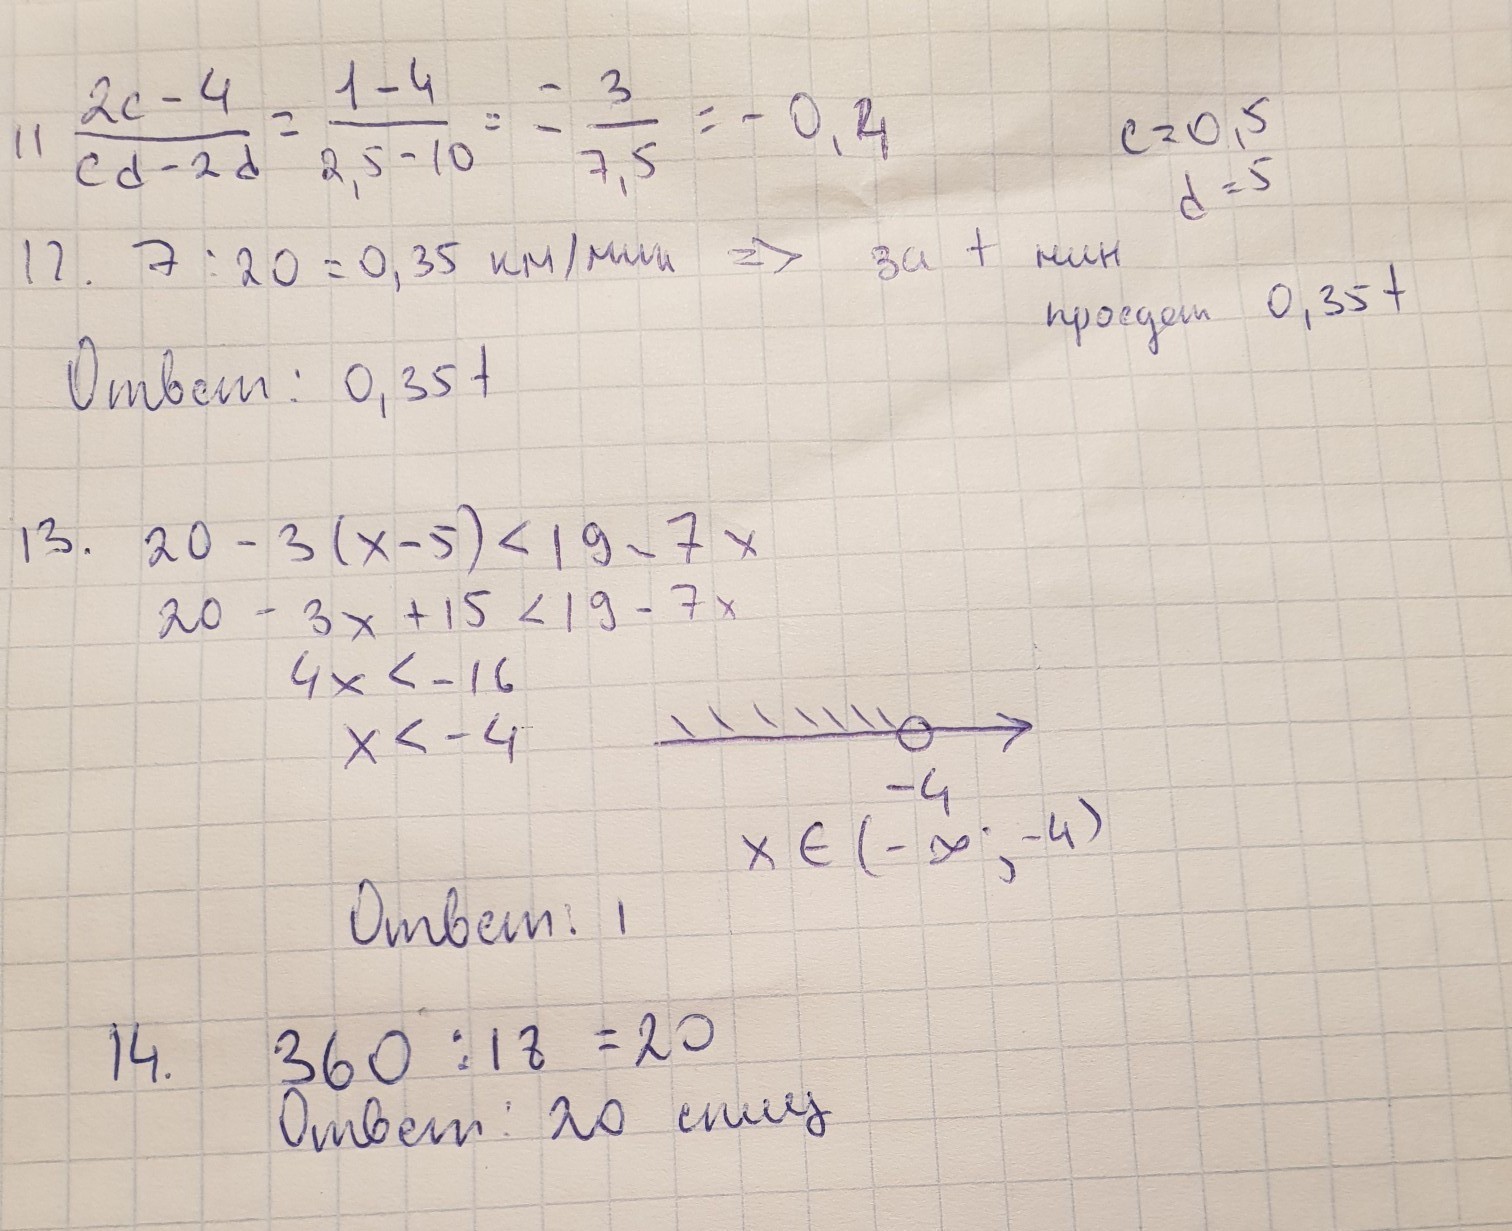 11 (2c-4)/(cd-2d) = (1-4)/(2,5-10) = -3/-7,5 = -0,4 c=0,5
d=5
12. 7:20=0,35 км/мин => за t мин
проедет 0,35t
Ответ: 0,35t
13. 20-3(x-5)<19-7x
20-3x+15<19-7x
4x<-16
x<-4
-4
x∈(-∞;-4)
Ответ: 1
14. 360:18=20
Ответ: 20 спиц